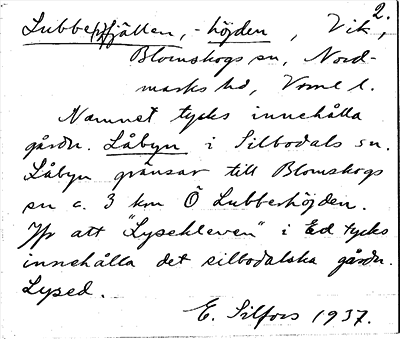 2.
Lubbe(r)fjällen, -höjden, Vik,
Blomskogs sn, Nord-
marks hd, Vrml l.
Namnet tycks innehålla
gårdn. Låbyn i Silbodals sn.
Låbyn gränsar till Blomskogs
sn c. 3 km Ö Lubberhöjden.
Jfr att "Lysekleven" i Ed tycks
innehålla det silbodalska gårdn.
Lysed.
E. Silfors 1937.